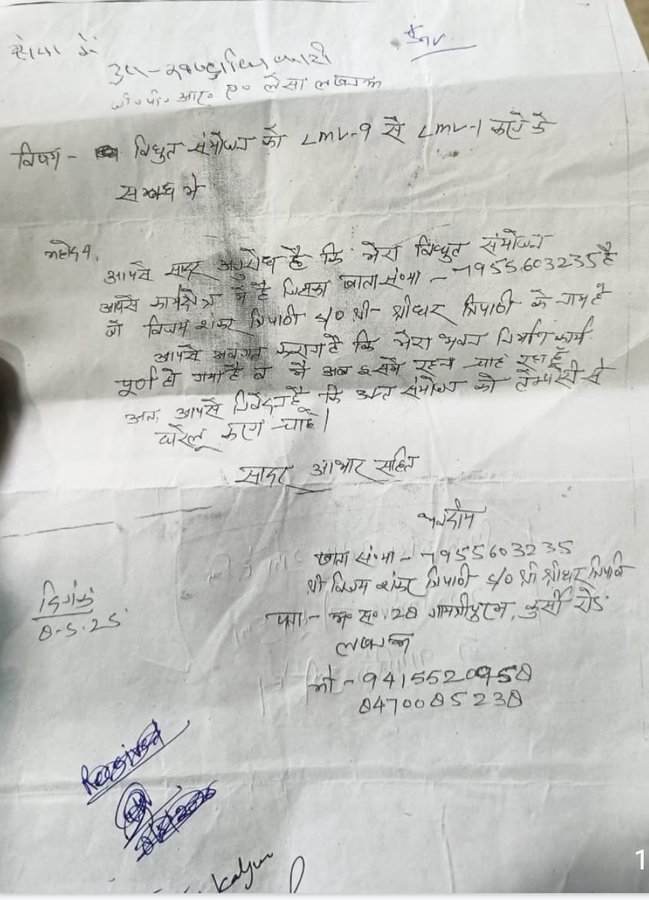 सेवा में
उप-खण्ड अधिकारी
जी० पी० आर० ए० लेसा लखनऊ
विषय - विधुत संयोजन को LMV-9 से LMV-1 करने के
सम्बंध में
महोदय,
आपसे सादर अनुरोध है कि मेरा विधुत संयोजन
आपके कार्यक्षेत्र में है जिसका खाता संख्या - 7955603235 है
जो विजय शंकर त्रिपाठी s/o श्री श्रीधर त्रिपाठी के नाम है
आपसे अवगत कराना है कि मेरा भवन निर्माण कार्य
पूर्ण हो गया है व मैं अब इसमें रहना चाह रहा हूँ
अतः आपसे निवेदन है कि उक्त संयोजन को टेम्परेरी से
घरेलू करना चाहे।
सादर आभार सहित
भवदीय
खाता संख्या - 7955603235
श्री विजय शंकर त्रिपाठी s/o श्री श्रीधर त्रिपाठी
पता - म० न० 28 गायत्रीपुरम, कुर्सी रोड
लखनऊ
मो - 9415520958
8470085238
दिनांक
8-5-25
Received
1